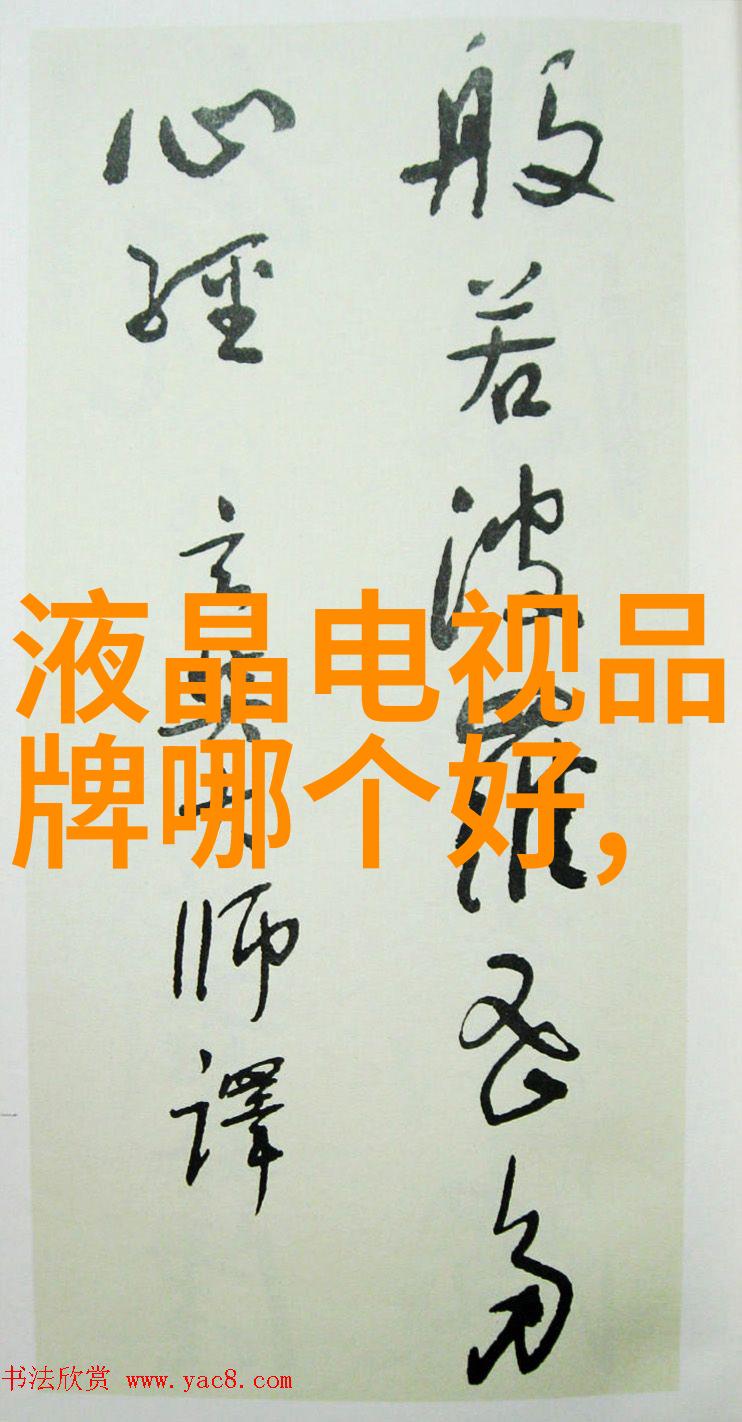 般若波羅蜜多
心經 玄奘大師譯
液晶电视品
牌哪个好,
书法欣赏 www.yac8.com